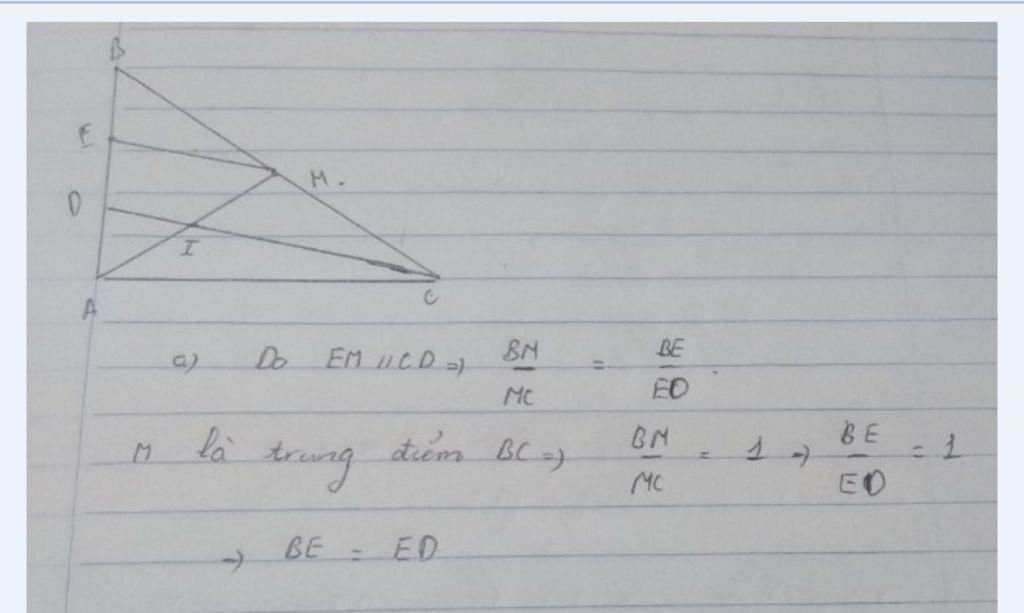 B
E
M.
D
I
A
C
a) Do EM // CD => BM/MC = BE/ED.
M là trung điểm BC => BM/MC = 1 -> BE/ED = 1
-> BE = ED